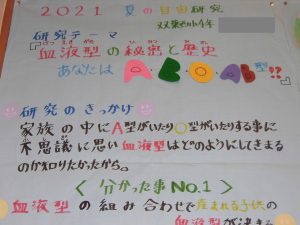 2021 夏の自由研究
4年
研究テーマ
けつえきがた ひみつ れきし
『血液型の秘密と歴史
あなたは A・B・O・AB型⁇』
研究のきっかけ
家族の中にA型がいたりO型がいたりする事に
不思議に思い血液型はどのようにしてきまる
のか知りたかったから。
＜ 分かった事 No.1 ＞
血液型の組み合わせで産まれる子供の
血液型が決まる